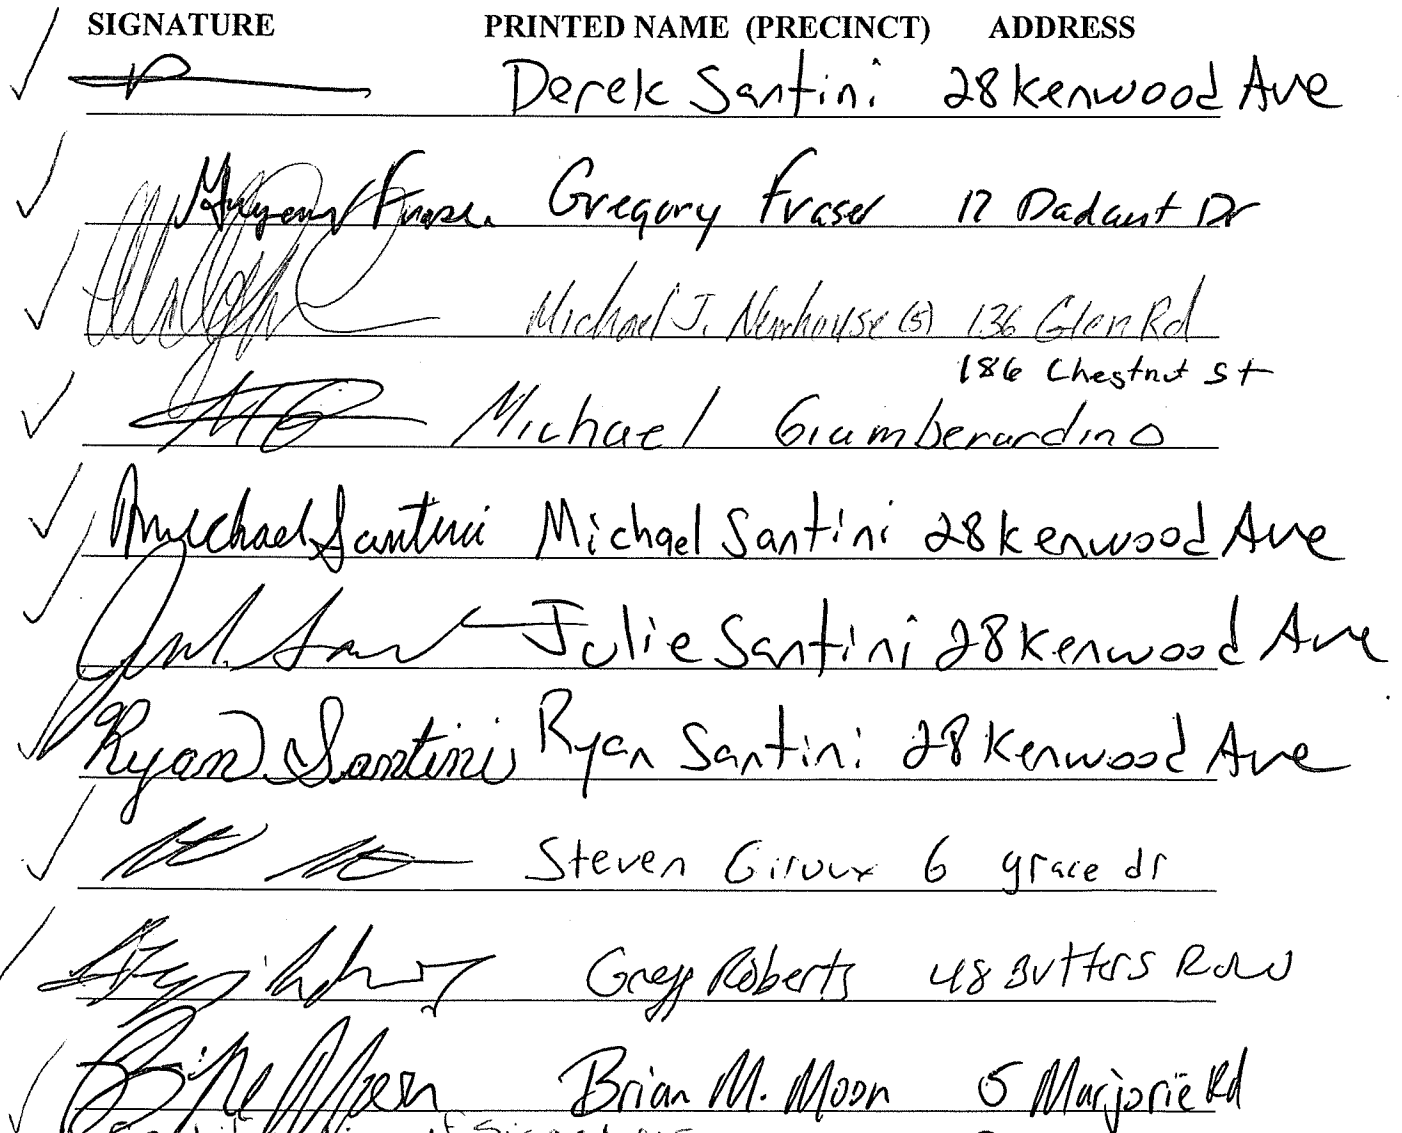 SIGNATURE PRINTED NAME (PRECINCT) ADDRESS
Derek Santini 28 Kenwood Ave
Gregory Fraser 17 Dadant Dr
Michael J. Newhouse (5) 136 Glen Rd
186 Chestnut St
Michael Giamberardino
Michael Santini Michael Santini 28 Kenwood Ave
Julie Santini 28 Kenwood Ave
Ryan Santini Ryan Santini 28 Kenwood Ave
Steven Giroux 6 grace dr
Gregg Roberts 48 Butters Row
Brian M. Moon 5 Marjorie Rd